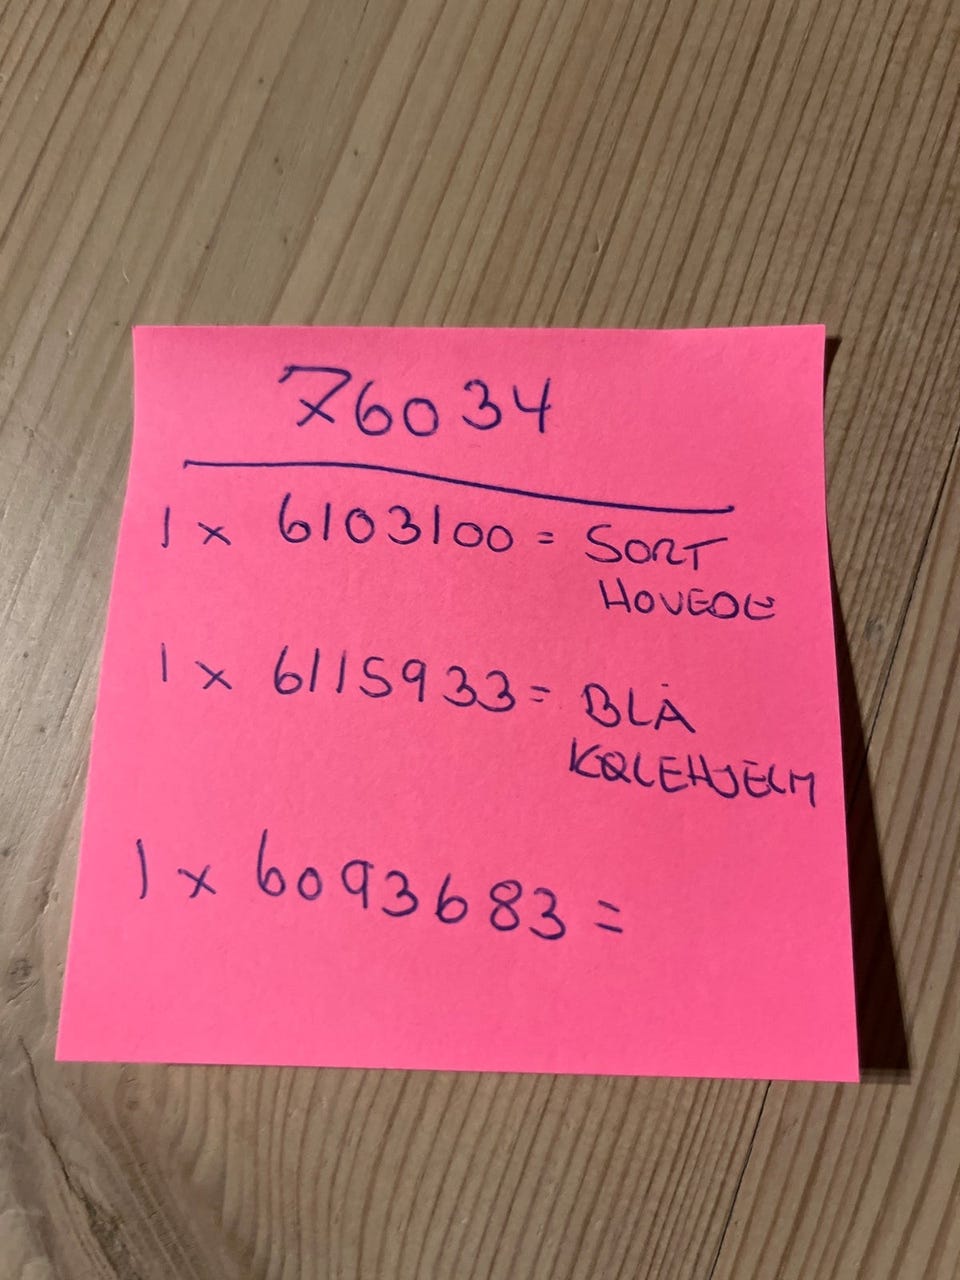 76034
1 x 6103100 = SORT
HOVEDE
1 x 6115933 = BLÅ
KØLEHJELM
1 x 6093683 =